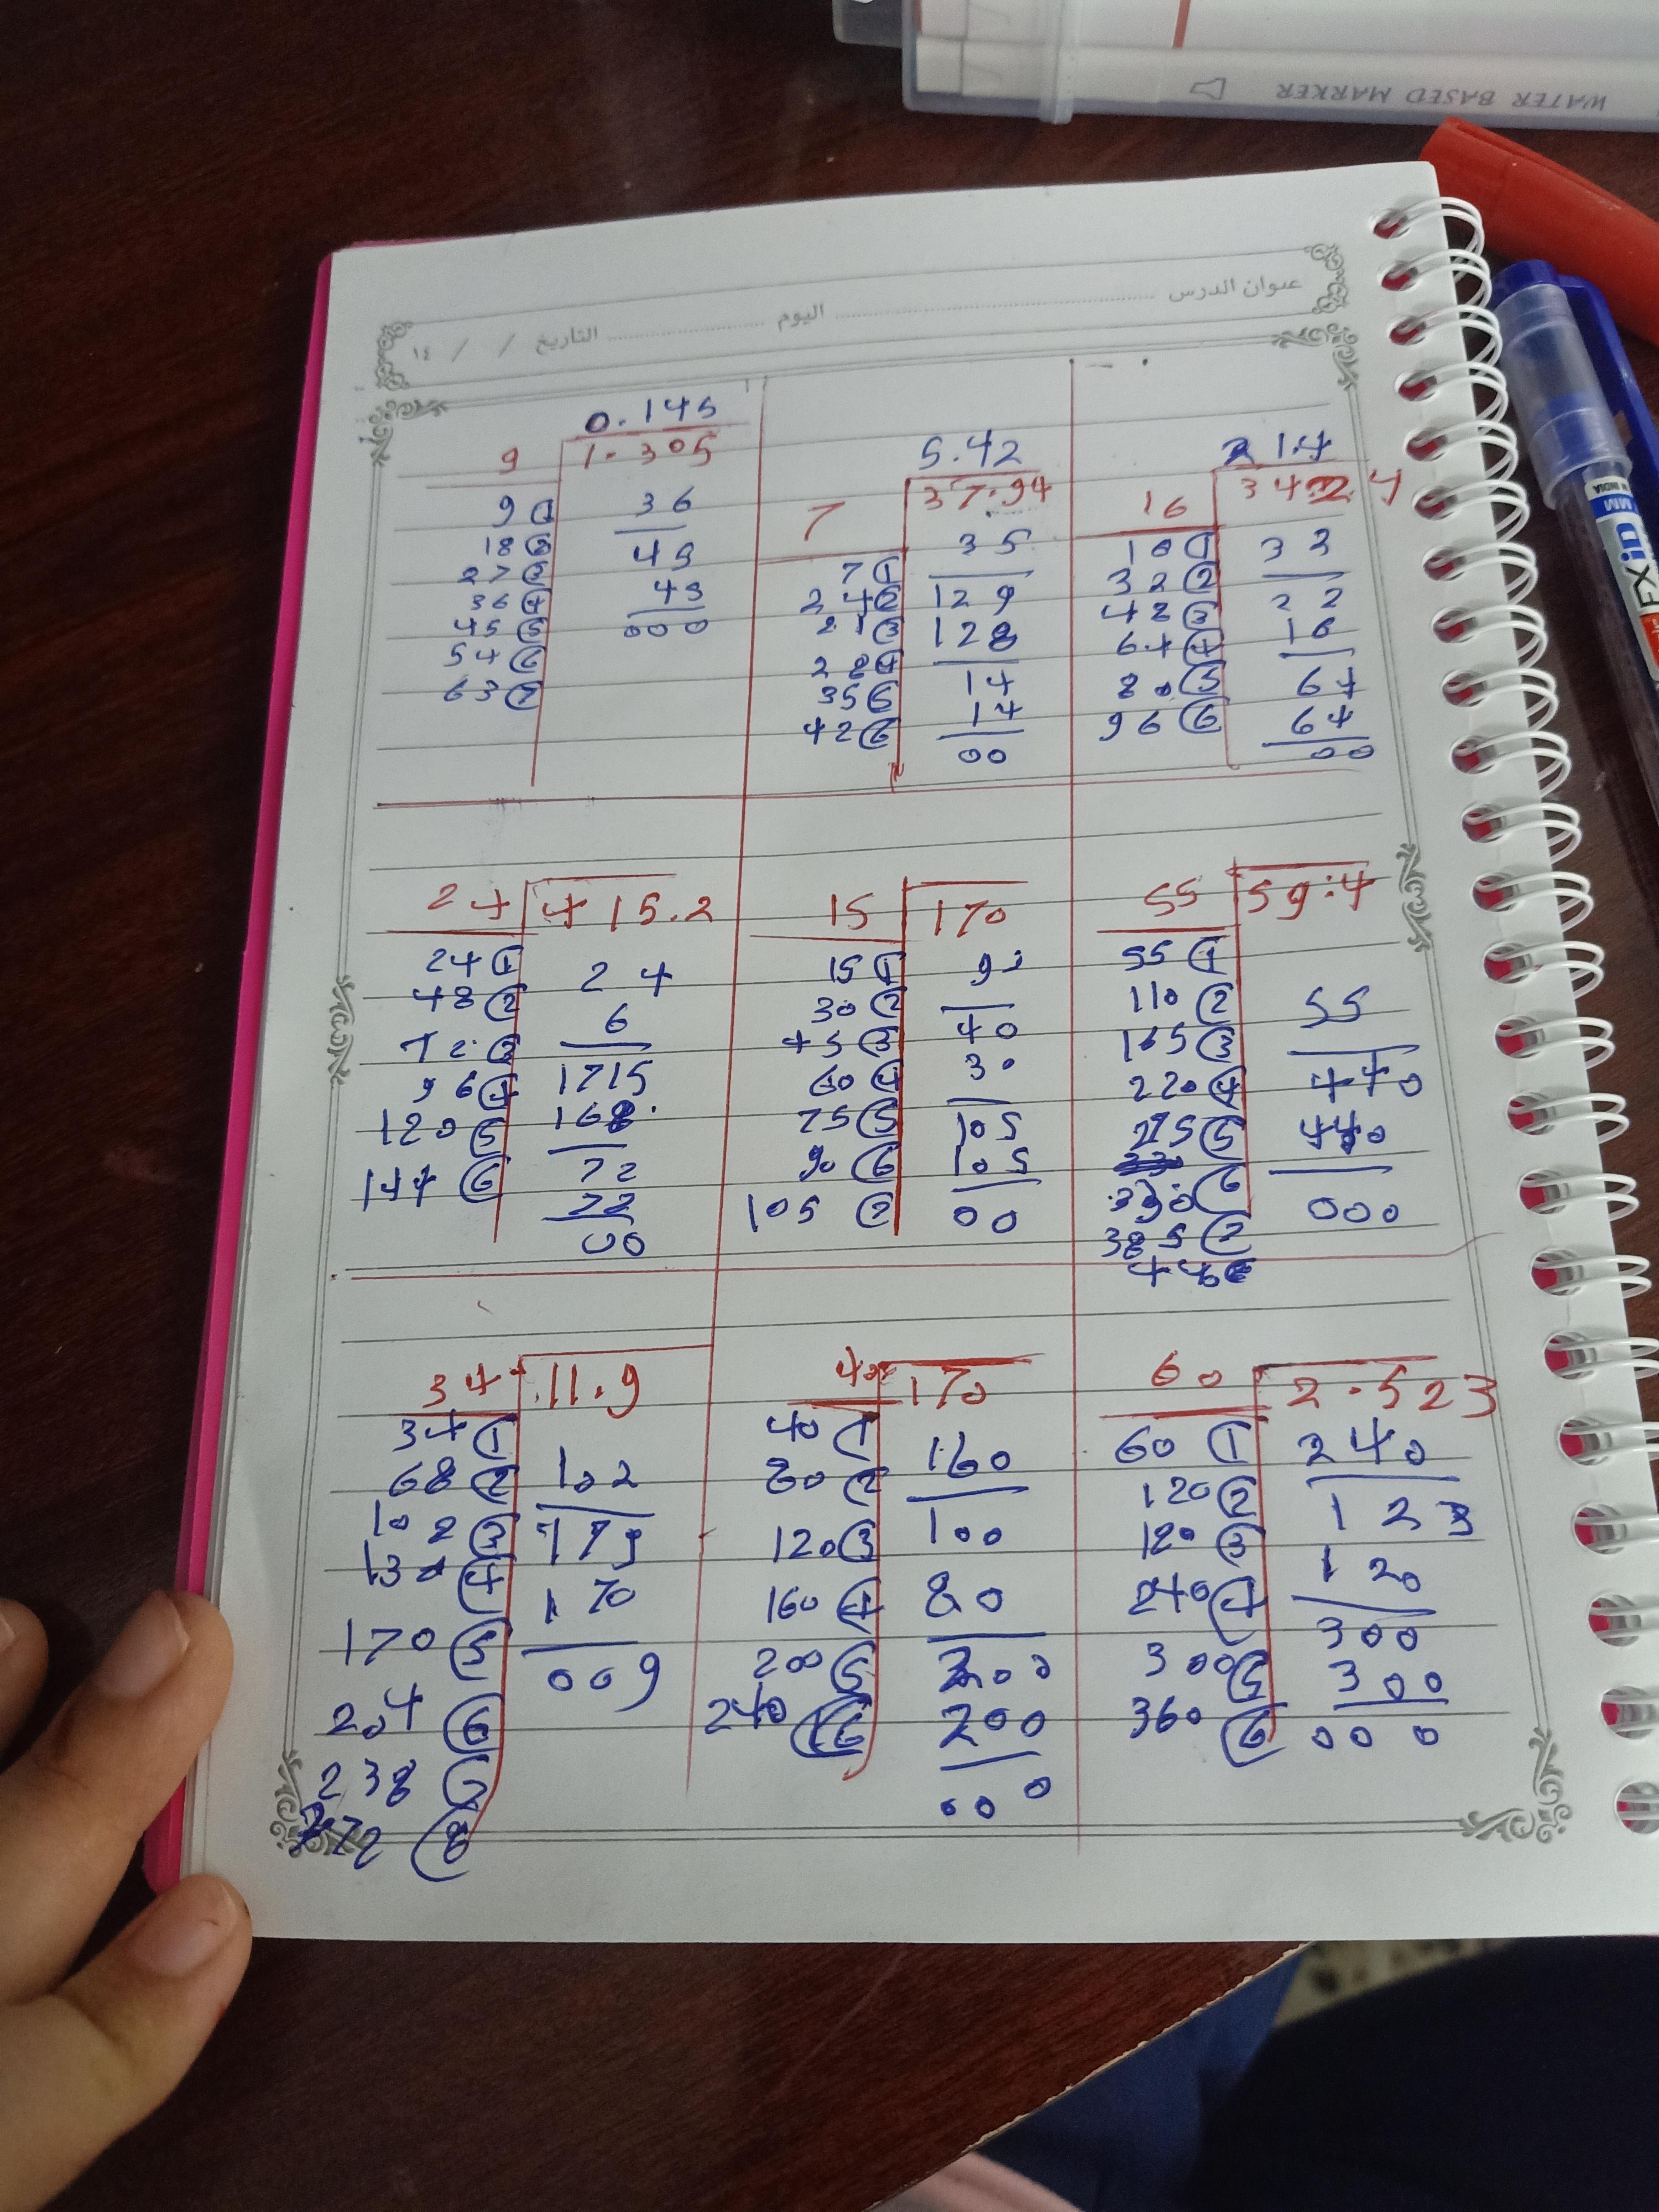 WATER BASED MARKER
عنوان الدرس اليوم التاريخ / / ١٤
0.145
9 1.305
9 1 36
18 2 45
27 3 45
36 4 000
45 5
54 6
63 7
5.42
7 37.94
7 1 35
2 4 2 129
21 3 128
28 4 14
35 5 14
42 6 00
21.4
16 342.4
16 1 32
32 2 22
48 3 16
64 4 64
80 5 64
96 6 00
24 415.2
24 1 24
48 2 6
72 3 1715
96 4 168
120 5 72
144 6 72
00
15 170
15 1
30 2 40
45 3 30
60 4 105
75 5 105
90 6 00
105 7
55 59.4
55 1 55
110 2 440
165 3 440
220 4 000
275 5
330 6
385 7
440
34 11.9
34 1 102
68 2 179
102 3 170
13 4 009
170 5
204 6
238 7
272 8
40 170
40 1 160
80 2 100
120 3 80
160 4 200
200 5 200
240 6 000
60 2.523
60 1 240
120 2 123
120 3 120
240 4 300
300 5 300
360 6 000